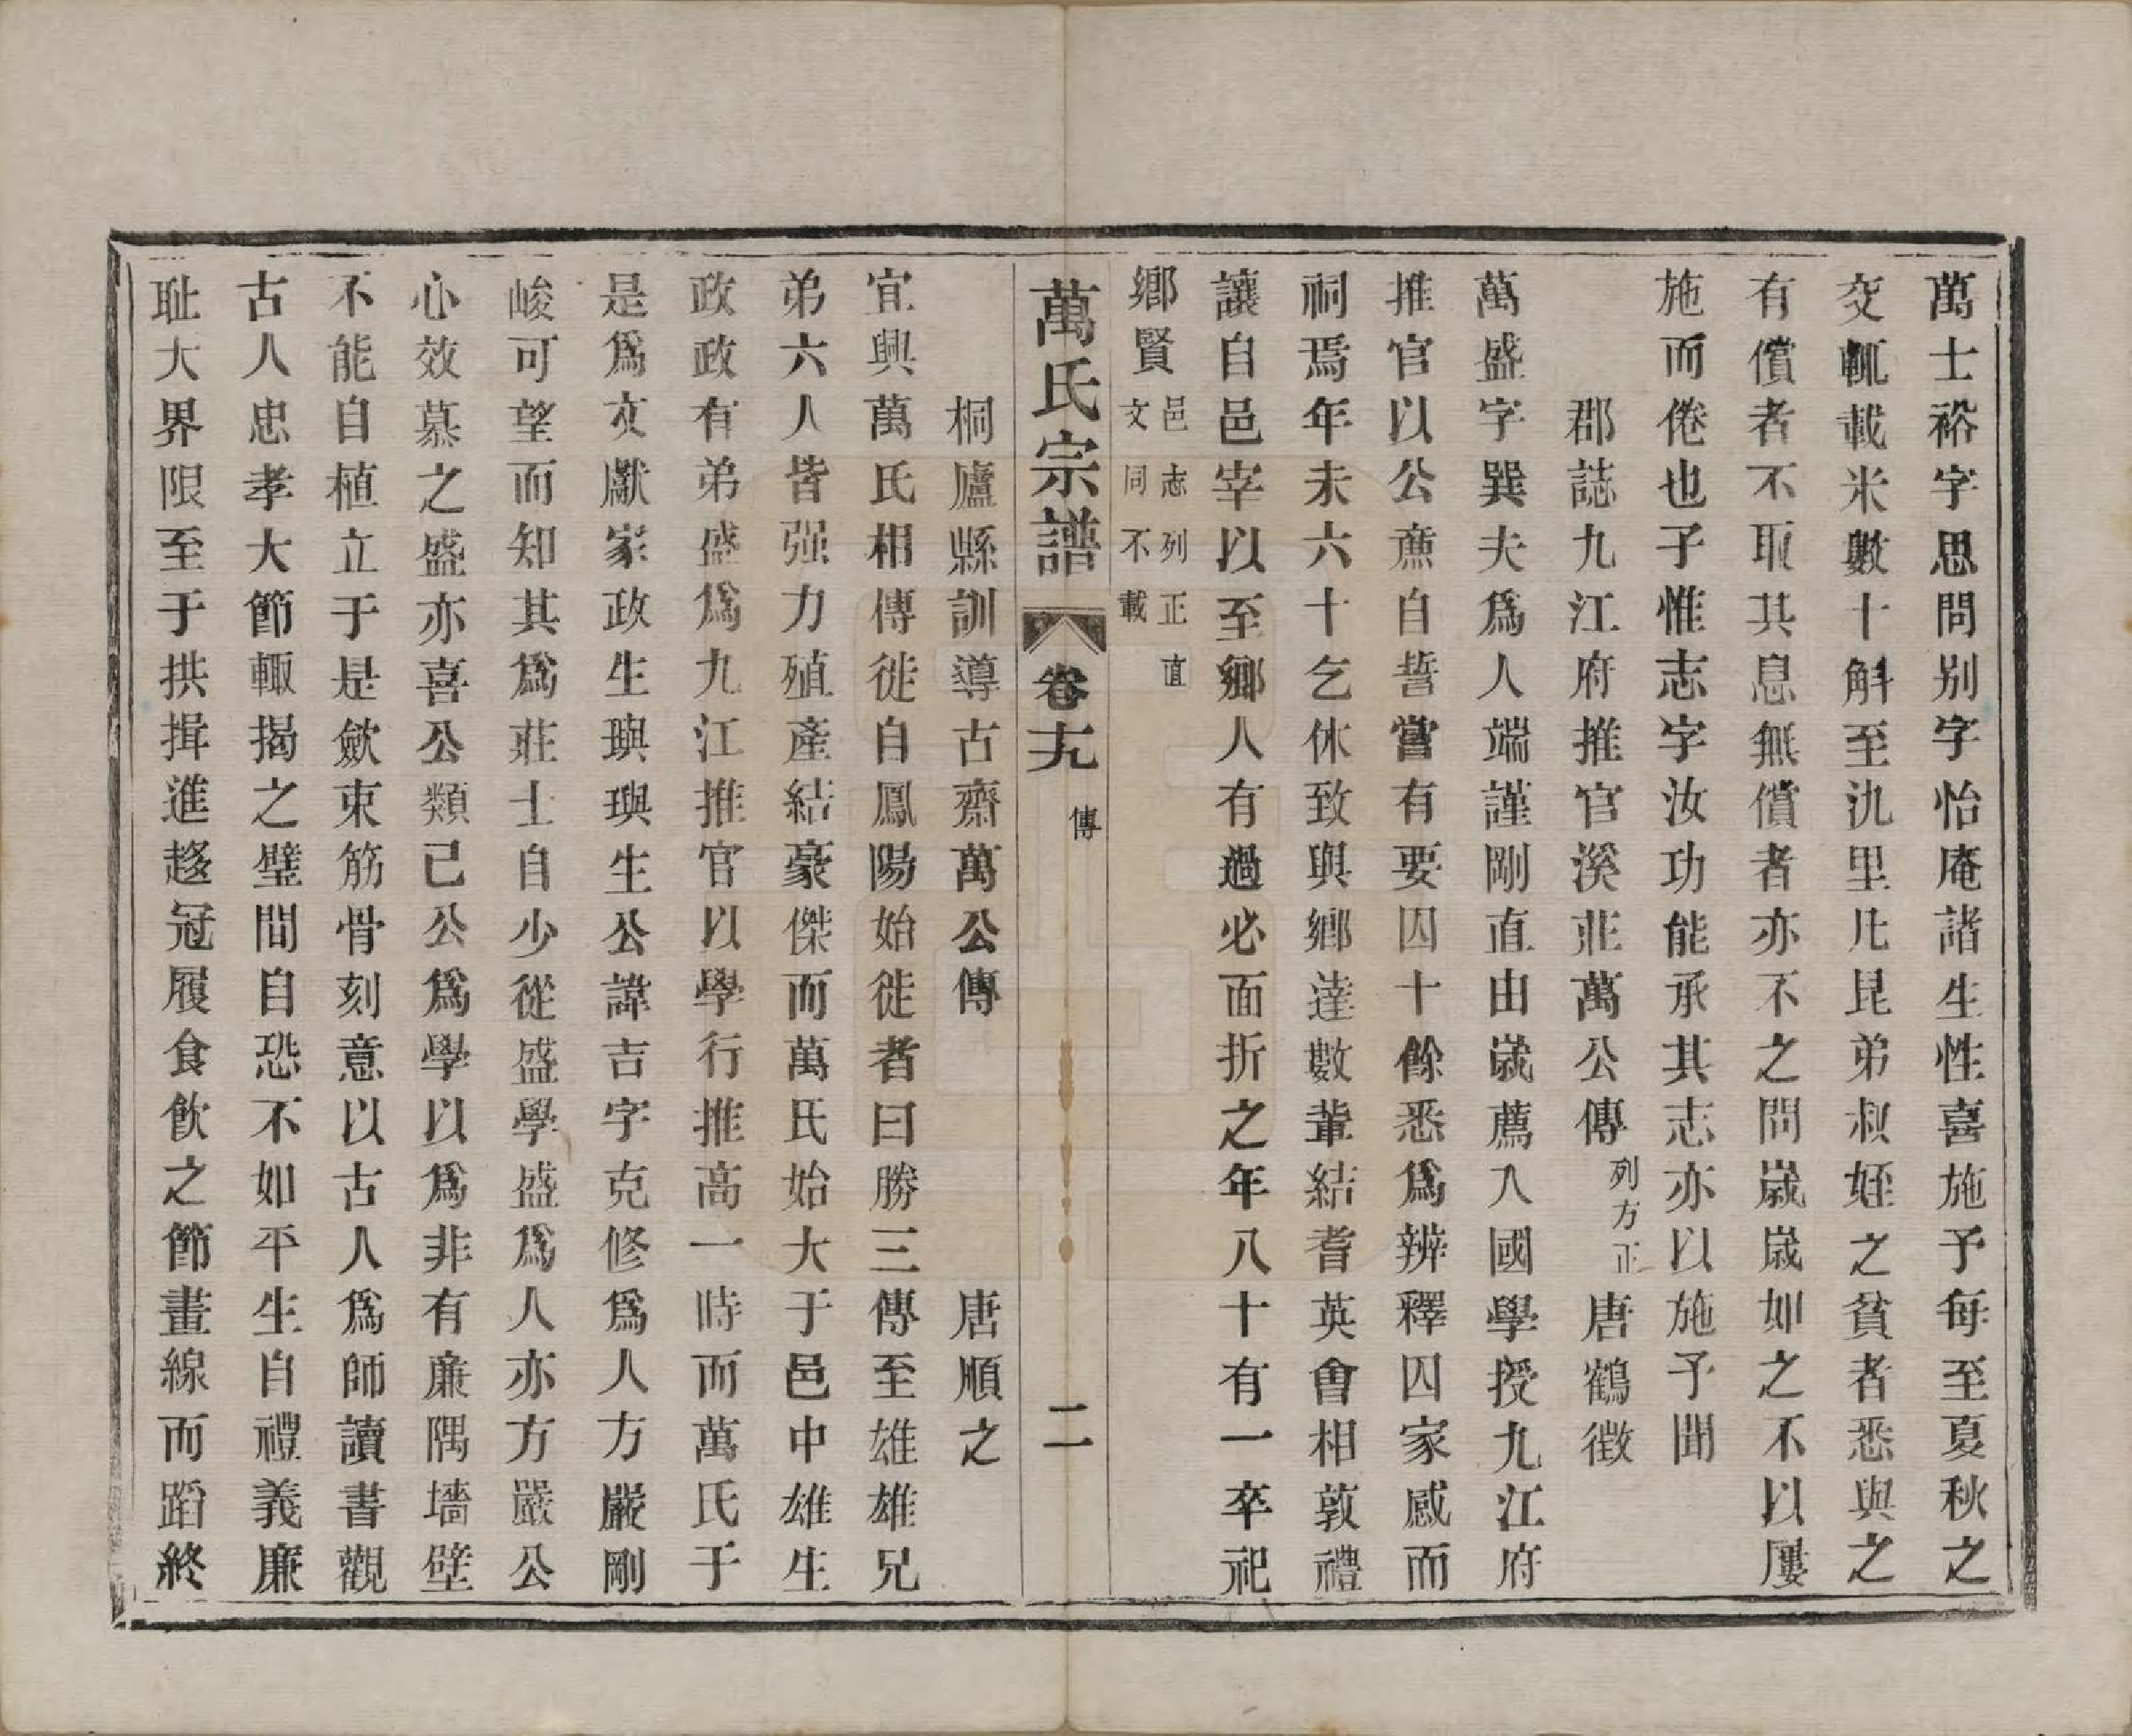 萬士裕字思問别字怡庵諸生性喜施予每至夏秋之
交輒載米數十斛至氿里凡昆弟叔姪之貧者悉與之
有償者不取其息無償者亦不之問歲歲如之不以屢
施而倦也子惟志字汝功能承其志亦以施予聞
郡誌九江府推官溪莊萬公傳 列方正 唐鶴徵
萬盛字巽夫爲人端謹剛直由歲薦入國學授九江府
推官以公廉自誓嘗有要囚十餘悉爲辨釋囚家感而
祠焉年未六十乞休致與鄉達數輩結耆英會相敦禮
讓自邑宰以至鄉人有過必面折之年八十有一卒祀
鄉賢 邑志列正直文同不載
萬氏宗譜 卷十九 傳 二
桐廬縣訓導古齋萬公傳 唐順之
宜興萬氏相傳徙自鳳陽始徙者曰勝三傳至雄雄兄
弟六人皆强力殖產結豪傑而萬氏始大于邑中雄生
政政有弟盛爲九江推官以學行推高一時而萬氏于
是爲文獻家政生璵璵生公諱吉字克修爲人方嚴剛
峻可望而知其爲莊士自少從盛學盛爲人亦方嚴公
心效慕之盛亦喜公類己公爲學以爲非有廉隅墻壁
不能自植立于是斂束筋骨刻意以古人爲師讀書觀
古人忠孝大節輙揭之壁間自恐不如平生自禮義廉
耻大界限至于拱揖進趍冠履食飲之節畫線而蹈終